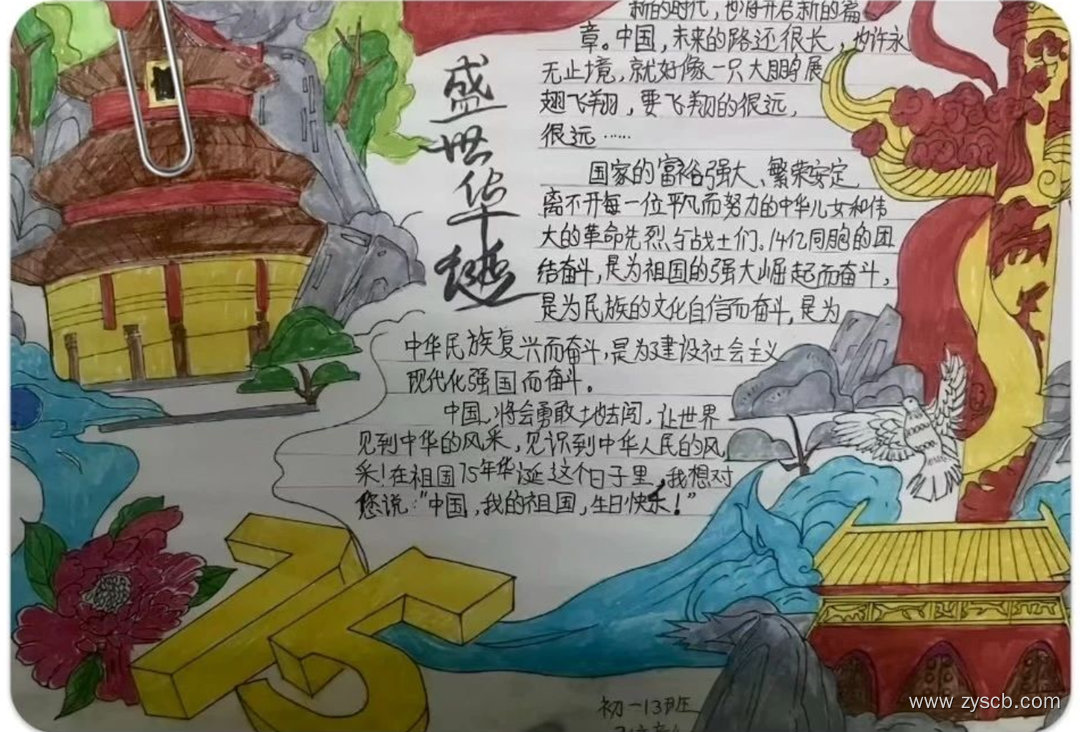 盛世华诞
新的时代，也得开启新的篇
章。中国，未来的路还很长，也许永
无止境，就好像一只大鹏展
翅飞翔，要飞翔的很远，
很远……
国家的富裕强大、繁荣安定，
离不开每一位平凡而努力的中华儿女和伟
大的革命先烈与战士们。14亿同胞的团
结奋斗，是为祖国的强大崛起而奋斗，
是为民族的文化自信而奋斗，是为
中华民族复兴而奋斗，是为建设社会主义
现代化强国而奋斗。
中国，将会勇敢地去闯，让世界
见到中华的风采，见识到中华人民的风
采！在祖国75年华诞这个日子里，我想对
您说：“中国，我的祖国，生日快乐！”
75
初一13班
www.zyscb.com